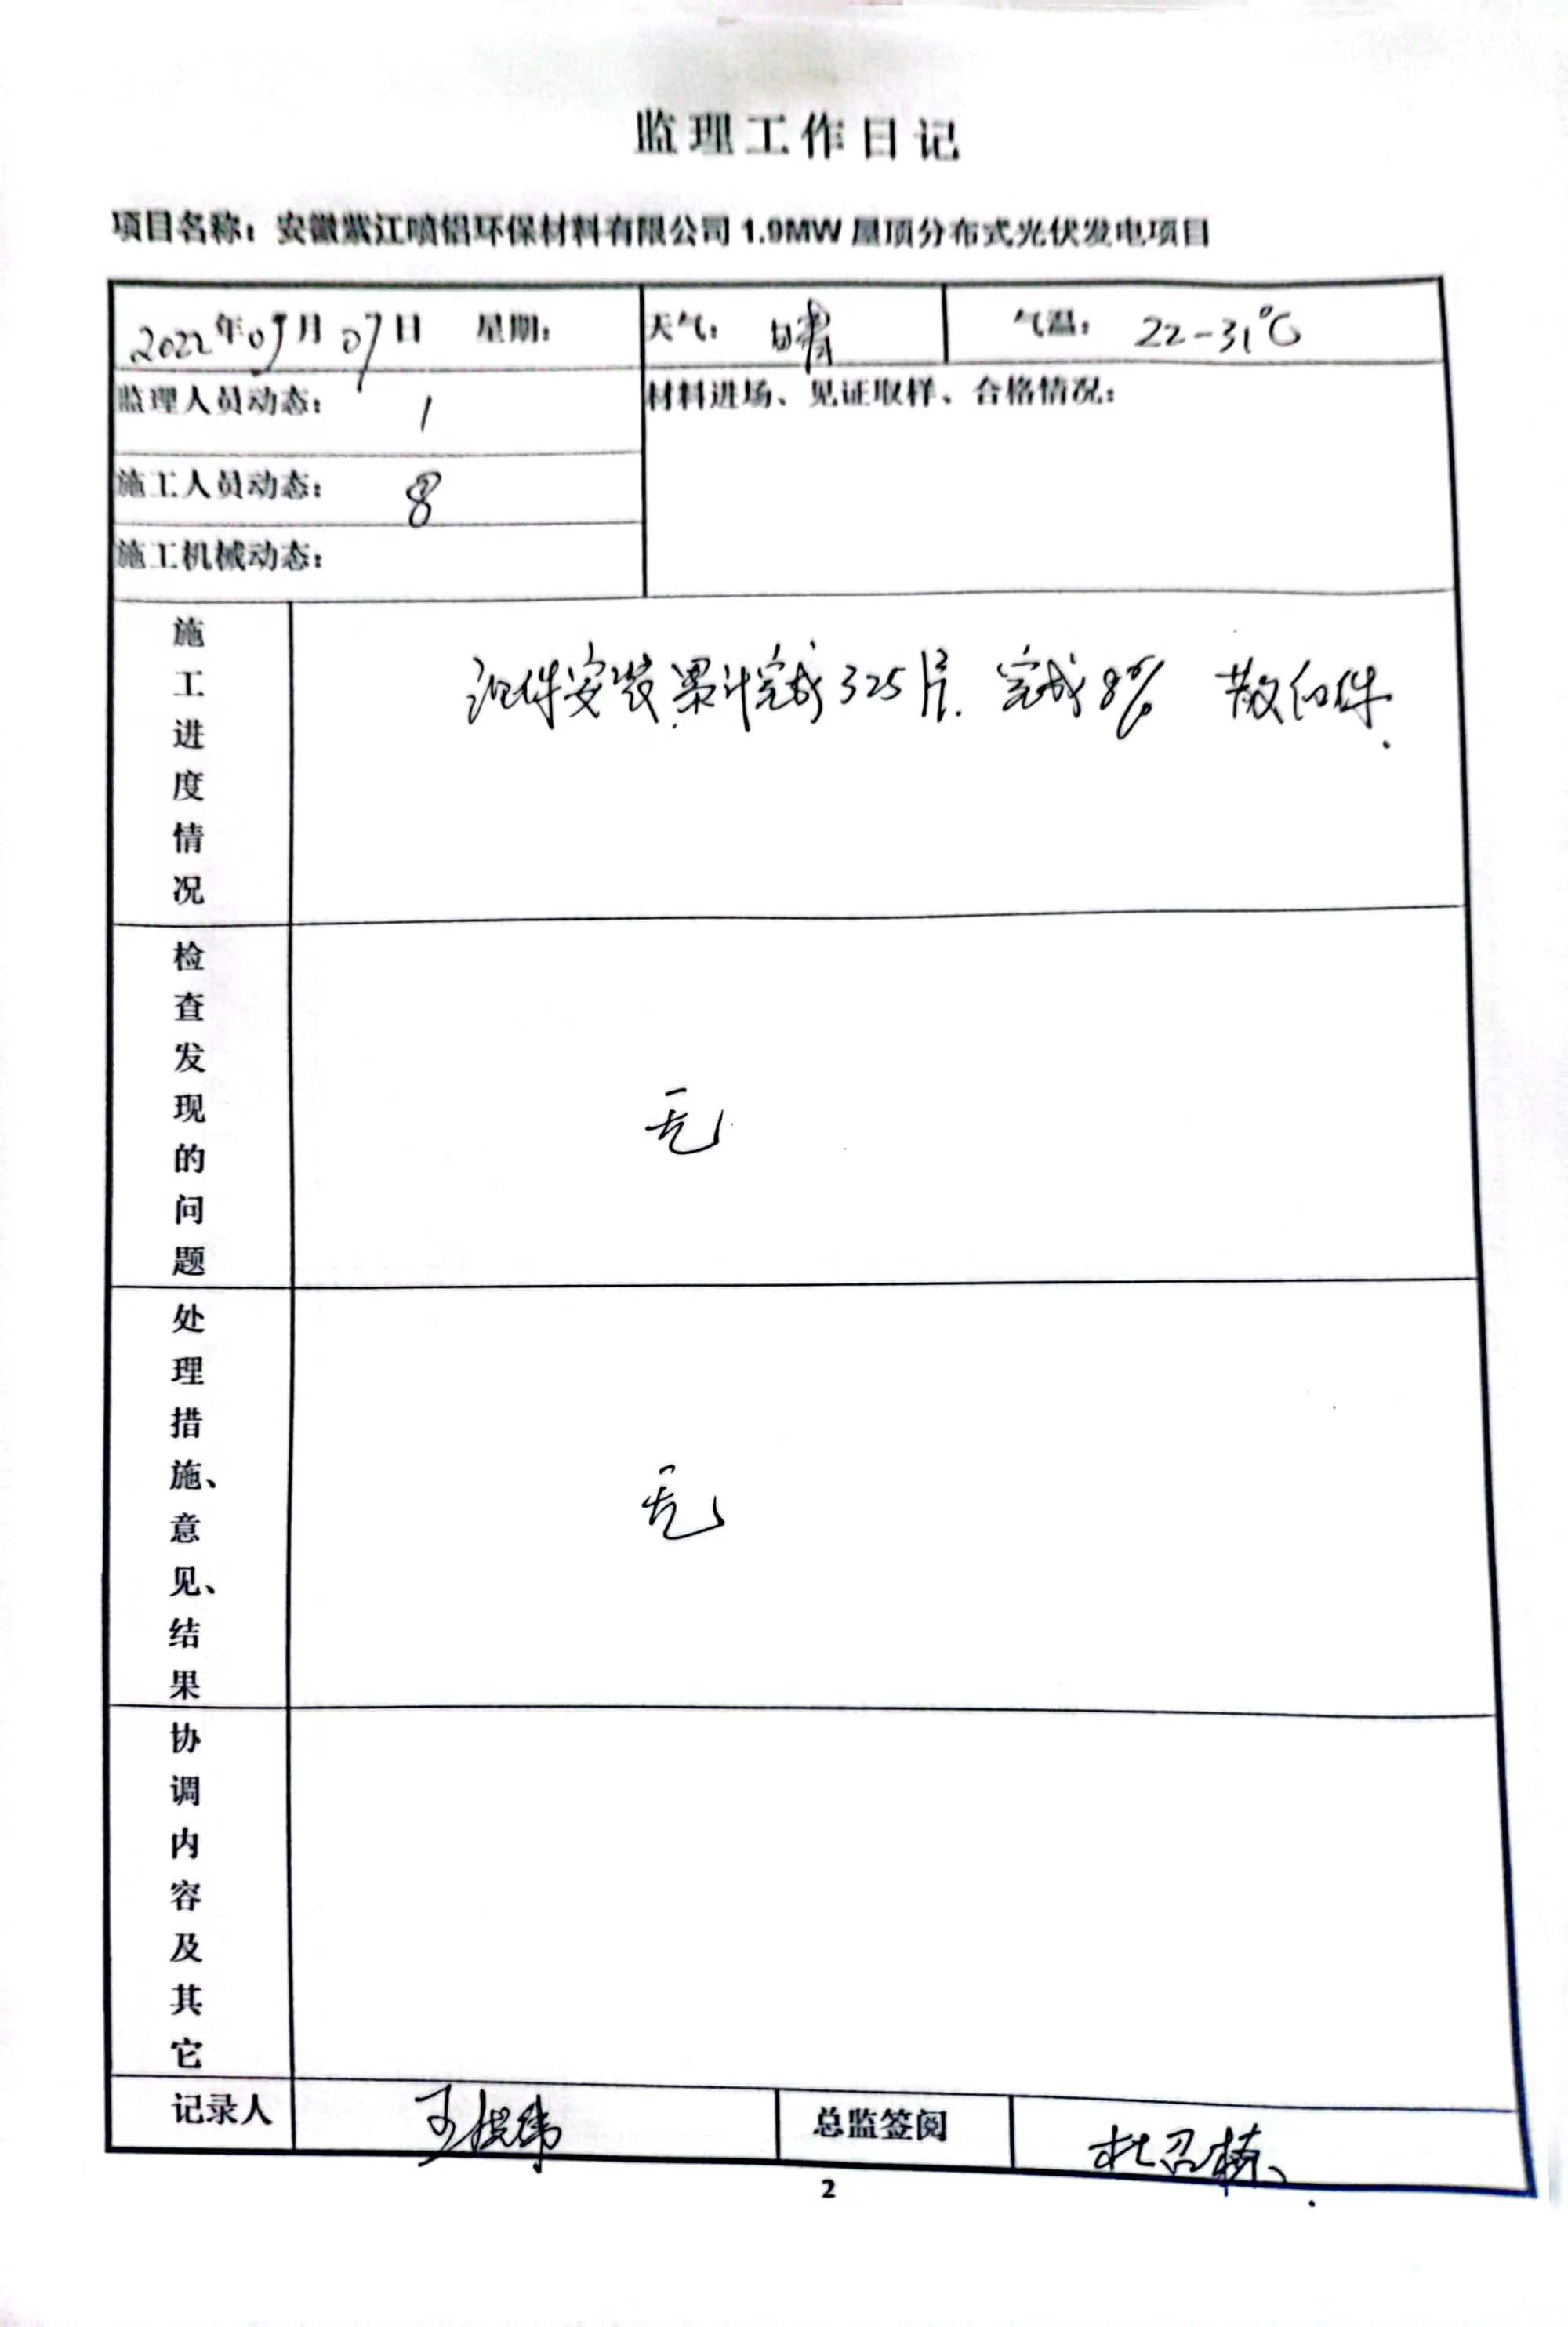 监理工作日记
项目名称：安徽紫江喷铝环保材料有限公司1.9MW屋顶分布式光伏发电项目
2022年09月07日 星期： 天气：晴 气温：22-31℃
监理人员动态：1 材料进场、见证取样、合格情况：
施工人员动态：8
施工机械动态：
施工进度情况 组件安装累计完成325片. 完成8% 散组件.
检查发现的问题 无
处理措施、意见、结果 无
协调内容及其它
记录人 王 总监签阅 杜召栋
2